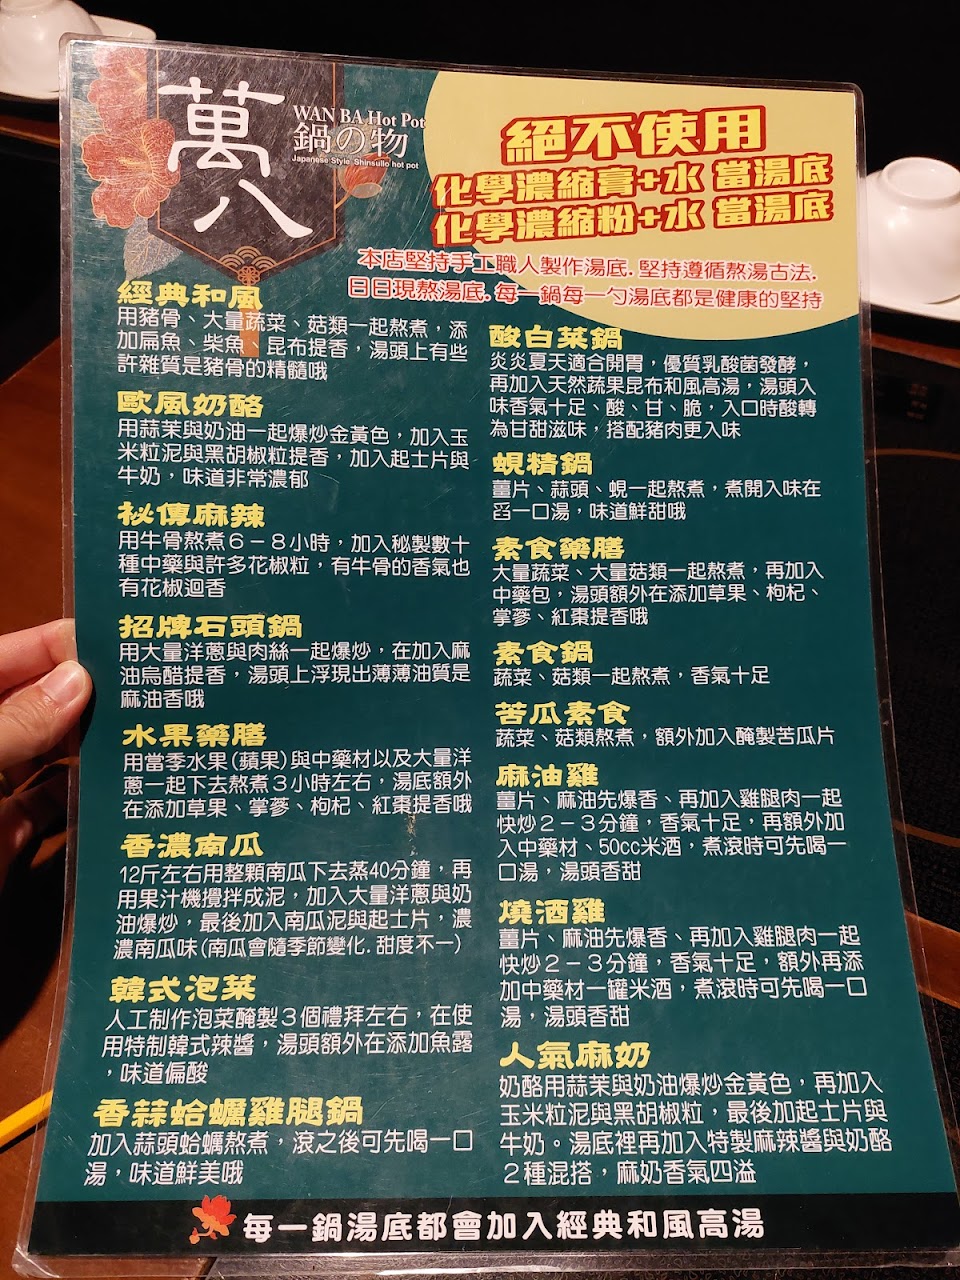 萬八
WAN BA Hot Pot
鍋の物
Japanese Style Shinsullo hot pot
絕不使用
化學濃縮膏+水 當湯底
化學濃縮粉+水 當湯底
本店堅持手工職人製作湯底.堅持遵循熬湯古法.
日日現熬湯底.每一鍋每一勺湯底都是健康的堅持
經典和風
用豬骨、大量蔬菜、菇類一起熬煮，添
加扁魚、柴魚、昆布提香，湯頭上有些
許雜質是豬骨的精髓哦
歐風奶酪
用蒜茉與奶油一起爆炒金黃色，加入玉
米粒泥與黑胡椒粒提香，加入起士片與
牛奶，味道非常濃郁
祕傳麻辣
用牛骨熬煮6－8小時，加入秘製數十
種中藥與許多花椒粒，有牛骨的香氣也
有花椒迴香
招牌石頭鍋
用大量洋蔥與肉絲一起爆炒，在加入麻
油烏醋提香，湯頭上浮現出薄薄油質是
麻油香哦
水果藥膳
用當季水果(蘋果)與中藥材以及大量洋
蔥一起下去熬煮3小時左右，湯底額外
在添加草果、掌蔘、枸杞、紅棗提香哦
香濃南瓜
12斤左右用整顆南瓜下去蒸40分鐘，再
用果汁機攪拌成泥，加入大量洋蔥與奶
油爆炒，最後加入南瓜泥與起士片，濃
濃南瓜味(南瓜會隨季節變化.甜度不一)
韓式泡菜
人工制作泡菜醃製3個禮拜左右，在使
用特制韓式辣醬，湯頭額外在添加魚露
，味道偏酸
香蒜蛤蠣雞腿鍋
加入蒜頭蛤蠣熬煮，滾之後可先喝一口
湯，味道鮮美哦
酸白菜鍋
炎炎夏天適合開胃，優質乳酸菌發酵，
再加入天然蔬果昆布和風高湯，湯頭入
味香氣十足、酸、甘、脆，入口時酸轉
為甘甜滋味，搭配豬肉更入味
蜆精鍋
薑片、蒜頭、蜆一起熬煮，煮開入味在
舀一口湯，味道鮮甜哦
素食藥膳
大量蔬菜、大量菇類一起熬煮，再加入
中藥包，湯頭額外在添加草果、枸杞、
掌蔘、紅棗提香哦
素食鍋
蔬菜、菇類一起熬煮，香氣十足
苦瓜素食
蔬菜、菇類熬煮，額外加入醃製苦瓜片
麻油雞
薑片、麻油先爆香、再加入雞腿肉一起
快炒2－3分鐘，香氣十足，再額外加
入中藥材、50cc米酒，煮滾時可先喝一
口湯，湯頭香甜
燒酒雞
薑片、麻油先爆香、再加入雞腿肉一起
快炒2－3分鐘，香氣十足，額外再添
加中藥材一罐米酒，煮滾時可先喝一口
湯，湯頭香甜
人氣麻奶
奶酪用蒜茉與奶油爆炒金黃色，再加入
玉米粒泥與黑胡椒粒，最後加起士片與
牛奶。湯底裡再加入特製麻辣醬與奶酪
2種混搭，麻奶香氣四溢
每一鍋湯底都會加入經典和風高湯